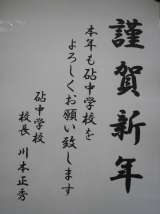 謹賀新年
本年も砧中学校を
よろしくお願い致します
砧中学校
校長 川本正秀